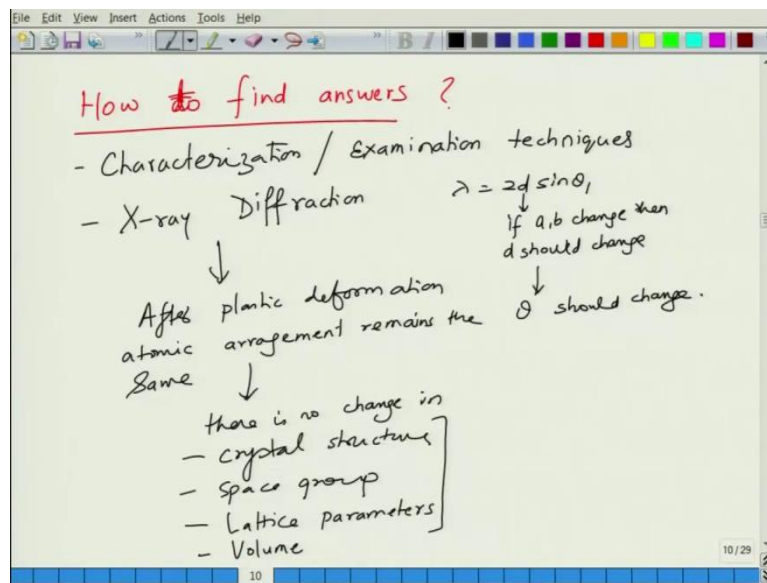 File Edit View Insert Actions Tools Help
B I
How to find answers ?
- Characterization / Examination techniques
- X-ray Diffraction
λ = 2d sinθ₁
if a,b change then
d should change
θ should change.
After plastic deformation
atomic arragement remains the
Same
there is no change in
- crystal structure
- space group
- Lattice parameters
- Volume
10/29
10